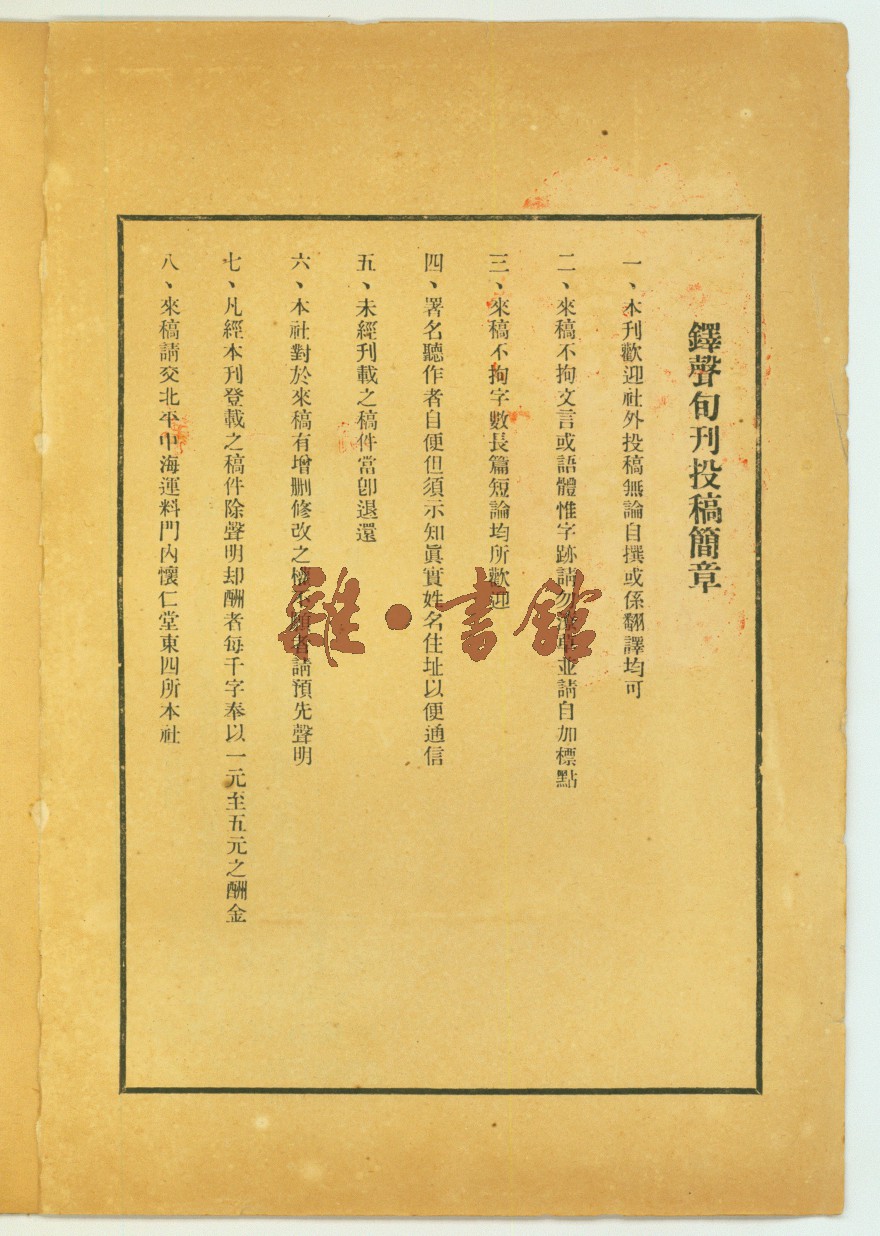 鐸聲旬刊投稿簡章
一、本刊歡迎社外投稿無論自撰或係翻譯均可
二、來稿不拘文言或語體惟字跡請勿草並請自加標點
三、來稿不拘字數長篇短論均所歡迎
四、署名聽作者自便但須示知眞實姓名住址以便通信
五、未經刊載之稿件當卽退還
六、本社對於來稿有增删修改之權不願者請預先聲明
七、凡經本刊登載之稿件除聲明却酬者每千字奉以一元至五元之酬金
八、來稿請交北平中海運料門內懷仁堂東四所本社
雜·書館